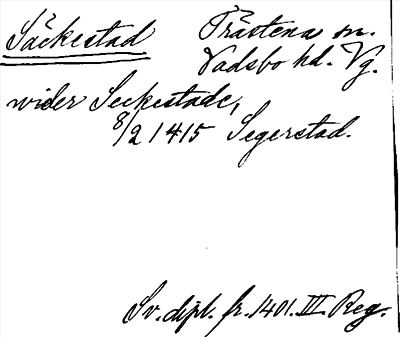 Säckestad Trästena sn.
Vadsbo hd. Vg.
wider Seckestade,
8/2 1415 Segerstad.
Sv. dipl. fr. 1401. III Reg.